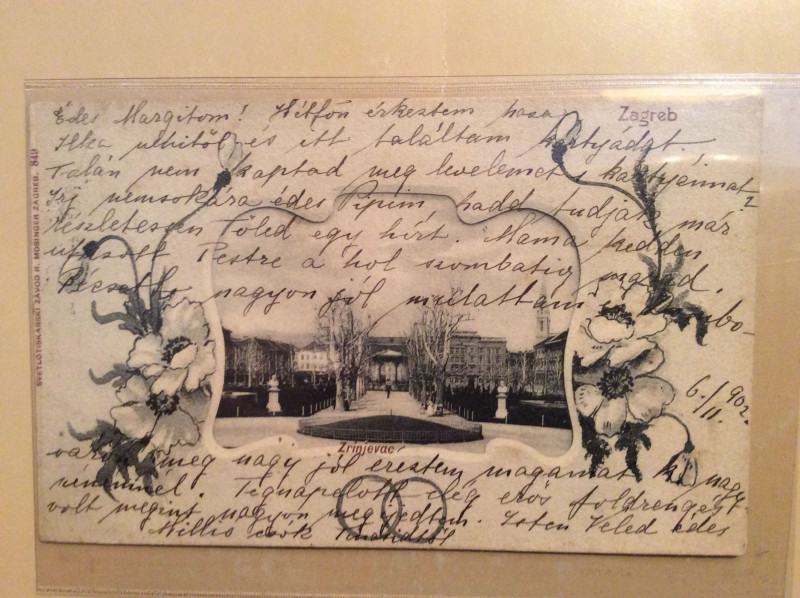 Édes Margitom! Hétfőn érkeztem haza
Zagreb
Ilka nénitől és itt találtam kártyádat.
Talán nem kaptad meg levelemet s kártyáimat?
Írj nemsokára édes Pipim, hadd tudjak már
részletesen Tőled egy hírt. Mama kedden
utazott Pestre a hol szombatig marad.
nagyon jól mulattam
6./11. 902.
Zrinjevac
meg nagy jól éreztem magamat
nénémnel. Tegnapelőtt elég erős földrengés
volt megint nagyon megijedtem. Isten Veled édes
Millió csók
SVETLOTISKARSKI ZAVOD R. MOSINGER ZAGREB. 849